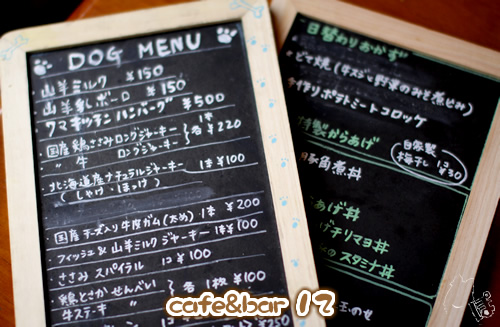 DOG MENU
山羊ミルク ¥150
山羊乳ボーロ ¥150
クマキッチン ハンバーグ ¥500
・国産 鶏ささみロングジャーキー 各1本 ¥220
〃 牛 ロングジャーキー
・北海道産ナチュラルジャーキー 1本 ¥100
(しゃけ・ほっけ)
・国産チーズ入り牛皮ガム(太め) 1本 ¥200
・フィッシュ&山羊ミルクジャーキー 1本 ¥100
・ささみ スパイラル 1コ ¥100
・鶏とさかせんべい 各1枚 ¥100
牛ステーキ 〃
¥250
日替わりおかず
・ゴマ焼(牛スジと野菜のみそ煮込み)
ポテトミートコロッケ
特製からあげ
自家製
梅干し 1コ
¥30
豚角煮丼
あげ丼
げチリマヨ丼
スタミナ丼
玉のせ
cafe&bar 12